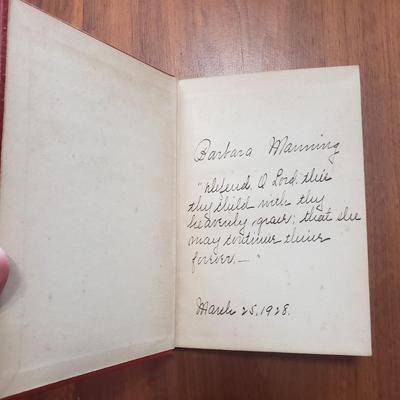 Barbara Manning
"Defend, O Lord, this
thy child with thy
heavenly grace; that she
may continue thine
forever.—"
March 25, 1928.